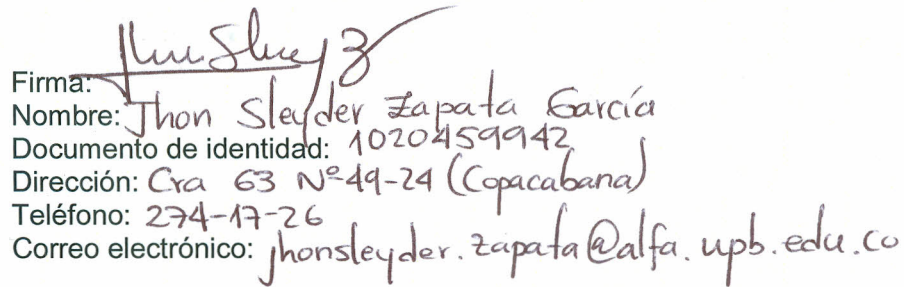 Firma:
Nombre: Jhon Sleyder Zapata García
Documento de identidad: 1020459942
Dirección: Cra 63 Nº 49-24 (Copacabana)
Teléfono: 274-17-26
Correo electrónico: jhonsleyder.zapata@alfa.upb.edu.co